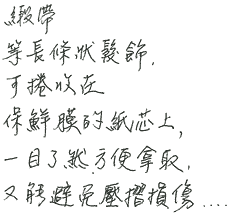 緞帶
等長條狀髮飾,
可捲收在
保鮮膜的紙芯上,
一目了然方便拿取,
又能避免壓摺損傷....